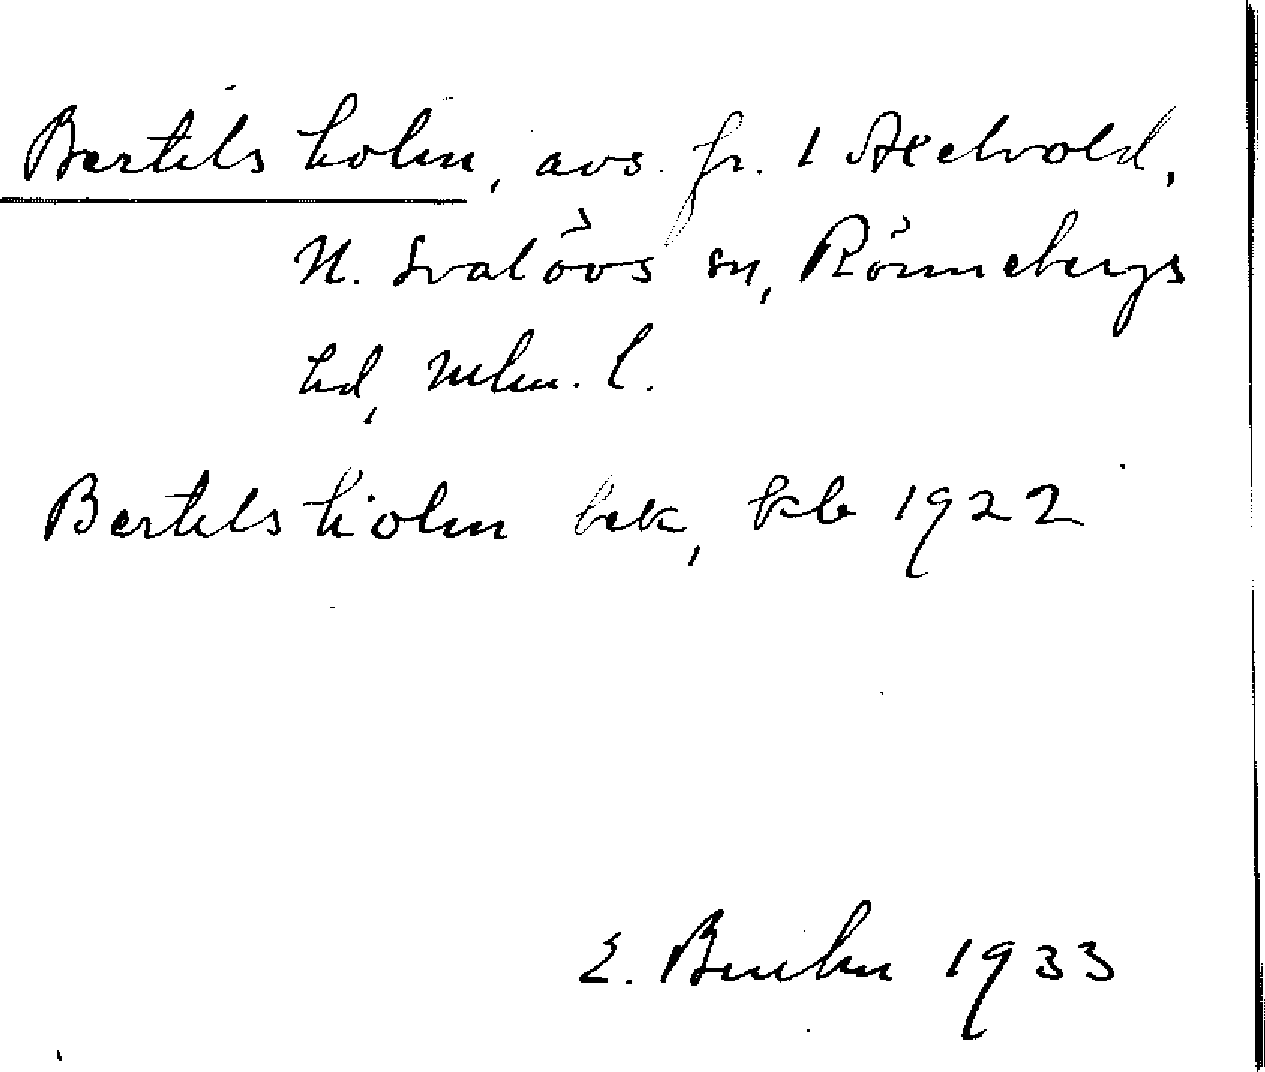 Bertelsholm, avs. fr. 1 Axelvold,
N. Svalövs sn, Rönnebergs
hd, Mlm. l.
Bertelsholm bek, kb 1922
E. 1933